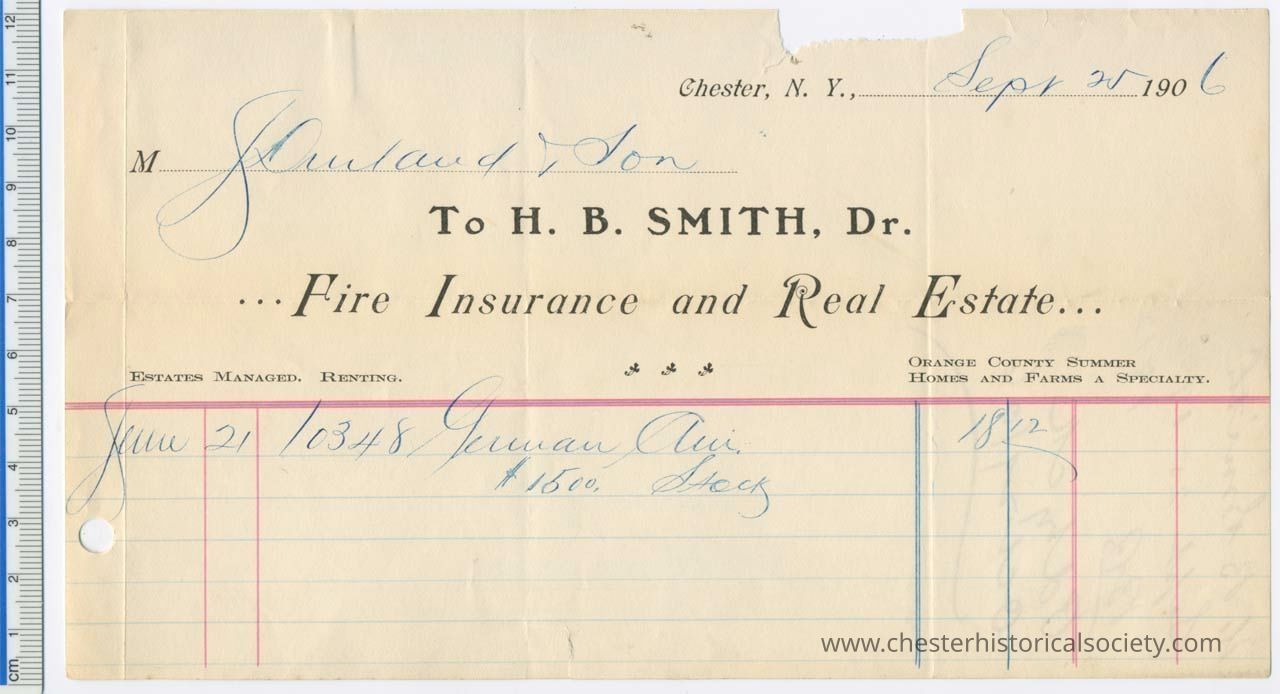 Chester, N. Y., Sept 25 1906
M J Durland & Son
To H. B. SMITH, Dr.
...Fire Insurance and Real Estate...
ESTATES MANAGED. RENTING.
ORANGE COUNTY SUMMER
HOMES AND FARMS A SPECIALTY.
June 21 10348 German Am. 18 12
$1500. Stock
www.chesterhistoricalsociety.com
cm 1 2 3 4 5 6 7 8 9 10 11 12